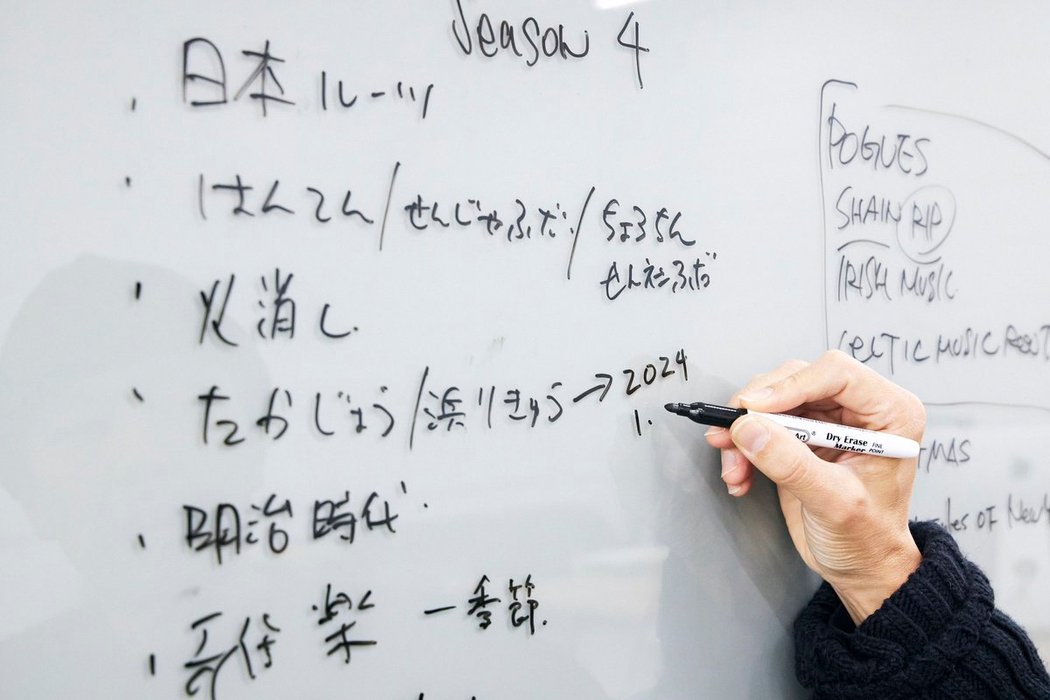 Season 4
・日本ルーツ
・はんてん/せんじゃふだ/ちょうちん
せんネームふだ
・火消し
・たかじょう/浜りきゅう→2024
1.
・明治時代
・雅楽 一季節
POGUES
SHAIN RIP
IRISH MUSIC
CELTIC MUSIC ROOT
-MAS
OF New
Dry Erase FINE
Marker POINT